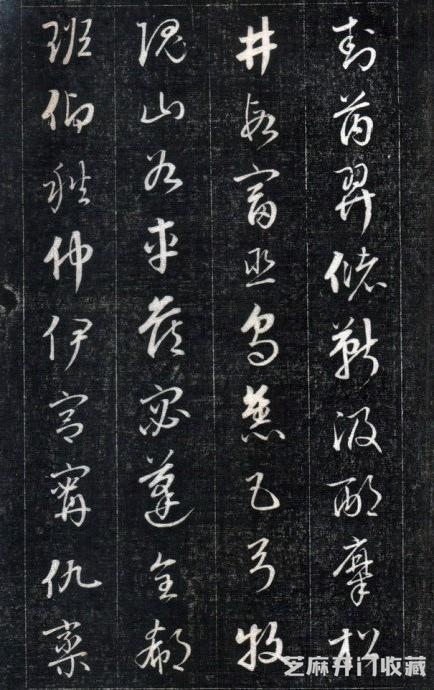 封芮羿儲靳汲邴糜松
井段富巫烏焦巴弓牧
隗山谷車侯宓蓬全郗
班仰秋仲伊宮甯仇欒
芝麻开门收藏